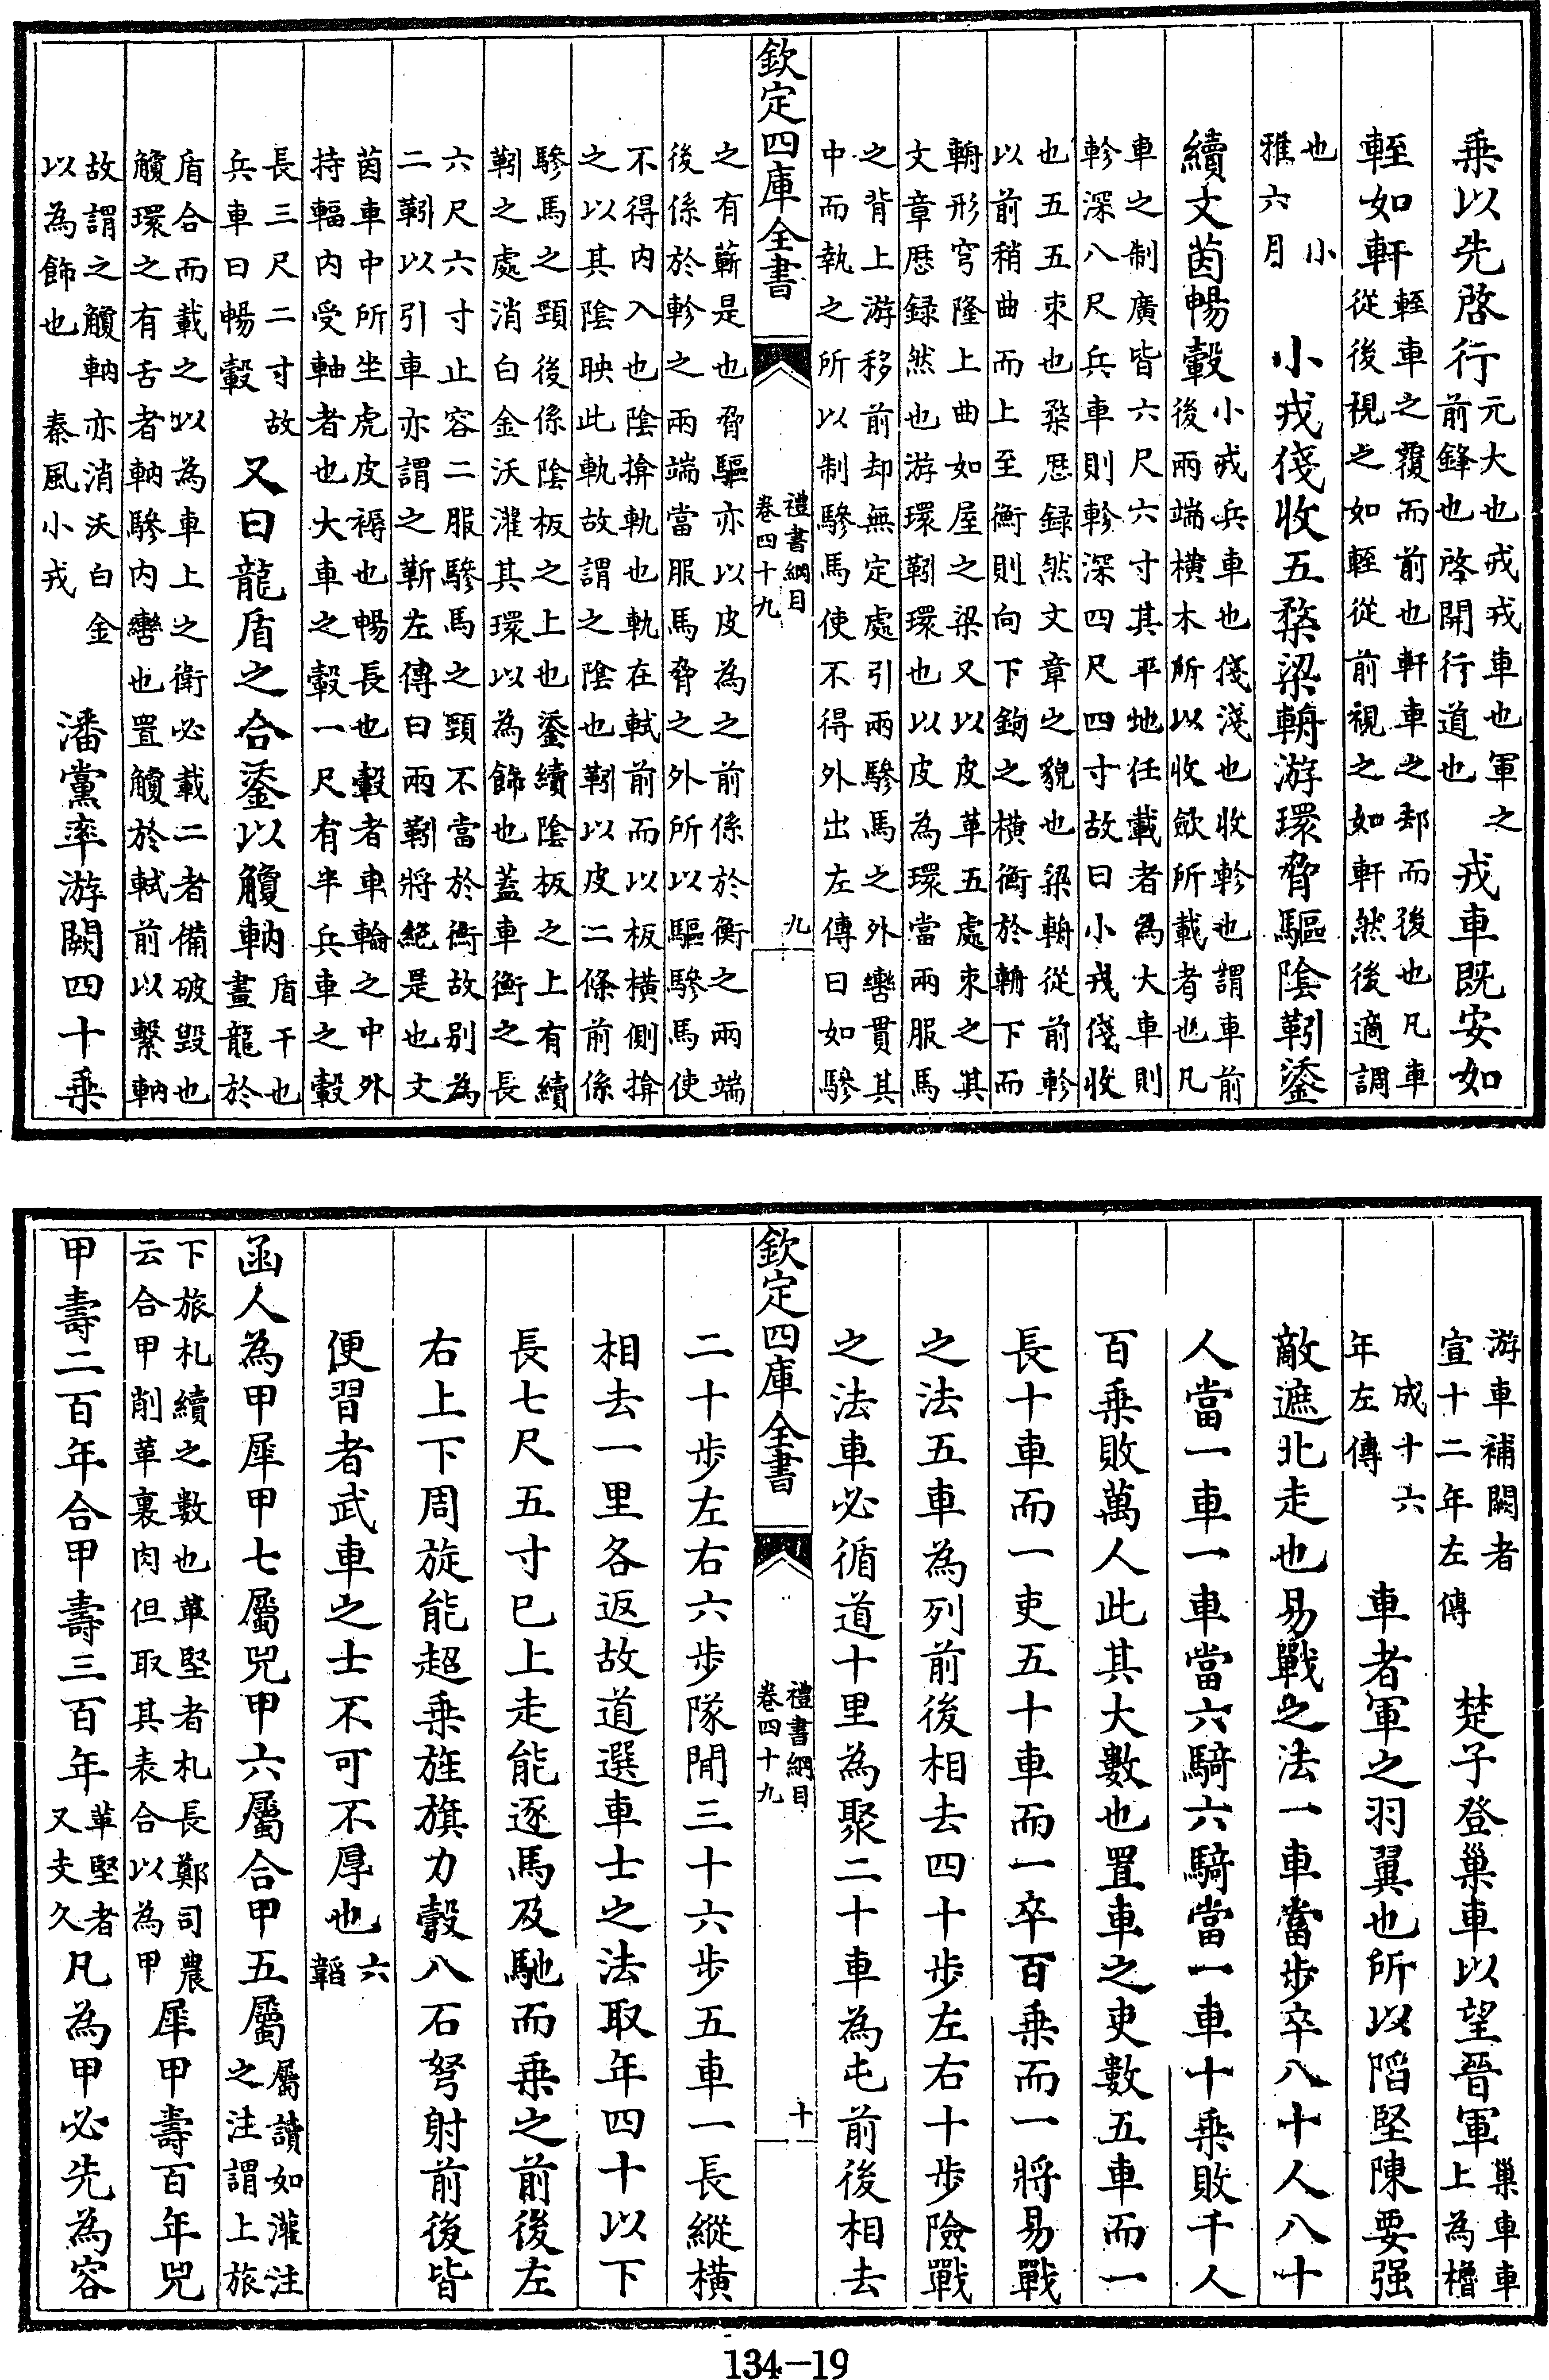 乗以先啓行元大也戎戎車也軍之前鋒也啓開行道也戎車既安如
輊如軒輊車之覆而前也軒車之却而後也凡車從後視之如輊從前視之如軒然後適調
也小雅六月小戎俴收五楘梁輈游環脅驅隂靷鋈
續文茵暢轂小戎兵車也俴淺也收軫也謂車前後兩端橫木所以收斂所載者也凡
車之制廣皆六尺六寸其平地任載者為大車則軫深八尺兵車則軫深四尺四寸故曰小戎俴收
也五五束也楘歴録然文章之貌也梁輈從前軫以前稍曲而上至衡則向下鉤之橫衡於輈下而
輈形穹隆上曲如屋之梁又以皮革五處束之其文章歴録然也游環靷環也以皮為環當兩服馬
之背上游移前却無定處引兩驂馬之外轡貫其中而執之所以制驂馬使不得外出左傳曰如驂
欽定四庫全書 禮書綱目卷四十九 九
之有靳是也脅驅亦以皮為之前係於衡之兩端後係於軫之兩端當服馬脅之外所以驅驂馬使
不得内入也隂揜軌也軌在軾前而以板橫側揜之以其隂映此軌故謂之隂也靷以皮二條前係
驂馬之頸後係隂板之上也鋈續隂板之上有續靷之處消白金沃灌其環以為飾也蓋車衡之長
六尺六寸止容二服驂馬之頸不當於衡故别為二靷以引車亦謂之靳左傳曰兩靷將絶是也文
茵車中所坐虎皮褥也暢長也轂者車輪之中外持輻内受軸者也大車之轂一尺有半兵車之轂
長三尺二寸故兵車曰暢轂又曰龍盾之合鋈以觼軜盾干也畫龍於
盾合而載之以為車上之衛必載二者備破毁也觼環之有舌者軜驂内轡也置觼於軾前以繫軜
故謂之觼軜亦消沃白金以為飾也秦風小戎潘黨率游闕四十乗
游車補闕者宣十二年左傳楚子登巢車以望晉軍巢車車上為櫓
成十六年左傳車者軍之羽翼也所以陷堅陳要强
敵遮北走也易戰之法一車當步卒八十人八十
人當一車一車當六騎六騎當一車十乗敗千人
百乗敗萬人此其大數也置車之吏數五車而一
長十車而一吏五十車而一卒百乗而一將易戰
之法五車為列前後相去四十步左右十步險戰
之法車必循道十里為聚二十車為屯前後相去
欽定四庫全書 禮書綱目卷四十九 十
二十步左右六步隊閒三十六步五車一長縱橫
相去一里各返故道選車士之法取年四十以下
長七尺五寸已上走能逐馬及馳而乗之前後左
右上下周旋能超乗旌旗力彀八石弩射前後皆
便習者武車之士不可不厚也六韜
函人為甲犀甲七屬兕甲六屬合甲五屬屬讀如灌注之注謂上旅
下旅札續之數也革堅者札長鄭司農云合甲削革裏肉但取其表合以為甲犀甲壽百年兕
甲壽二百年合甲壽三百年革堅者又支久凡為甲必先為容
134-19